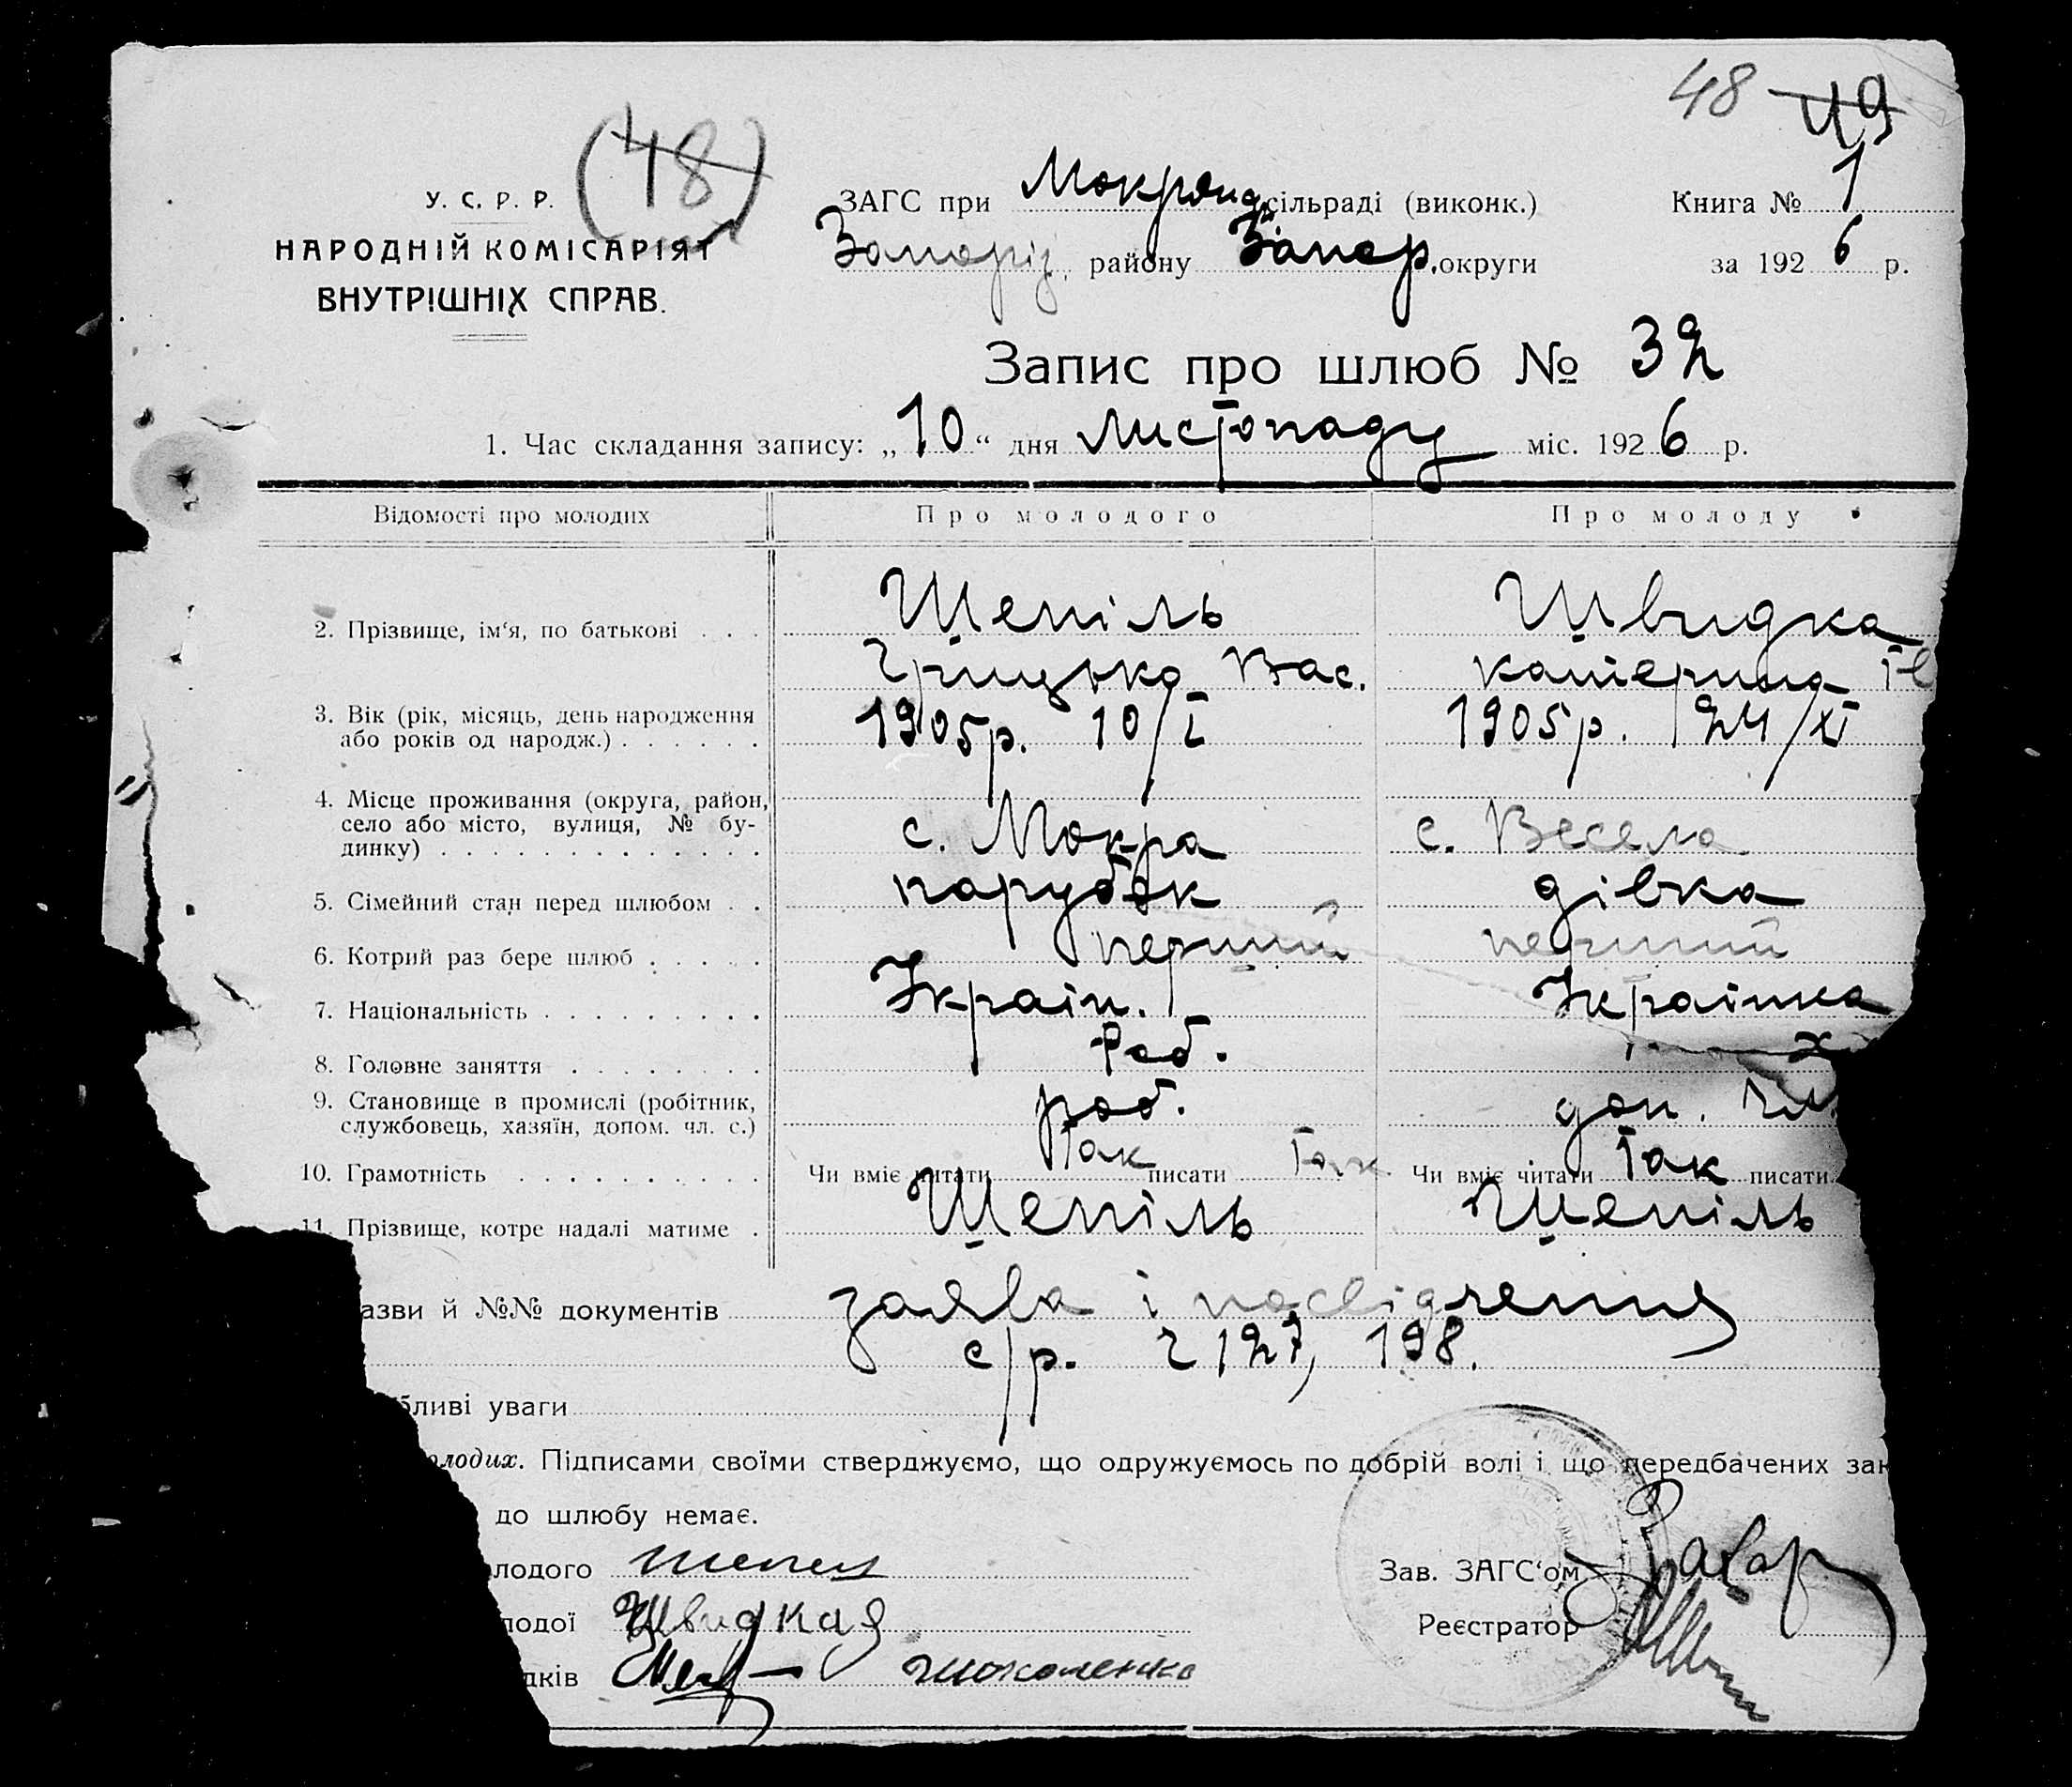 48 49
(48)
У. С. Р. Р.
НАРОДНІЙ КОМІСАРІЯТ
ВНУТРІШНІХ СПРАВ.
ЗАГС при Мокрянд. сільраді (виконк.) Книга № 1
Запоріз. району Запор. округи за 1926 р.
Запис про шлюб № 32
1. Час складання запису: „10“ дня Листопаду міс. 1926 р.
Відомості про молодих Про молодого Про молоду
2. Прізвище, ім‘я, по батькові . . . Шепіль Швидка
Грицько Вас. Катерина
3. Вік (рік, місяць, день народження 1905р. 10/I 1905р. 24/XI
або років од народж.) . . . . . .
4. Місце проживання (округа, район,
село або місто, вулиця, № бу- с. Мокра с. Весела
динку) . . . . . . . . . . . . .
5. Сімейний стан перед шлюбом . . парубок дівка
6. Котрий раз бере шлюб . . . . . перший перший
7. Національність . . . . . . . . . Україн. Українка
8. Головне заняття . . . . . . . . Роб.
9. Становище в промислі (робітник, роб. доп. чл.
службовець, хазяїн, допом. чл. с.)
10. Грамотність . . . . . . . . . . Чи вміє читати Так писати Так Чи вміє читати Так писати
11. Прізвище, котре надалі матиме . Шепіль Шепіль
азви й №№ документів заява і посвідчення
с/р. ч 127, 198.
бливі уваги
олодих. Підписами своїми стверджуємо, що одружуємось по добрій волі і що передбачених зак
до шлюбу немає.
лодого Шепел Зав. ЗАГС‘ом
лодої Швидкая Реєстратор
дків